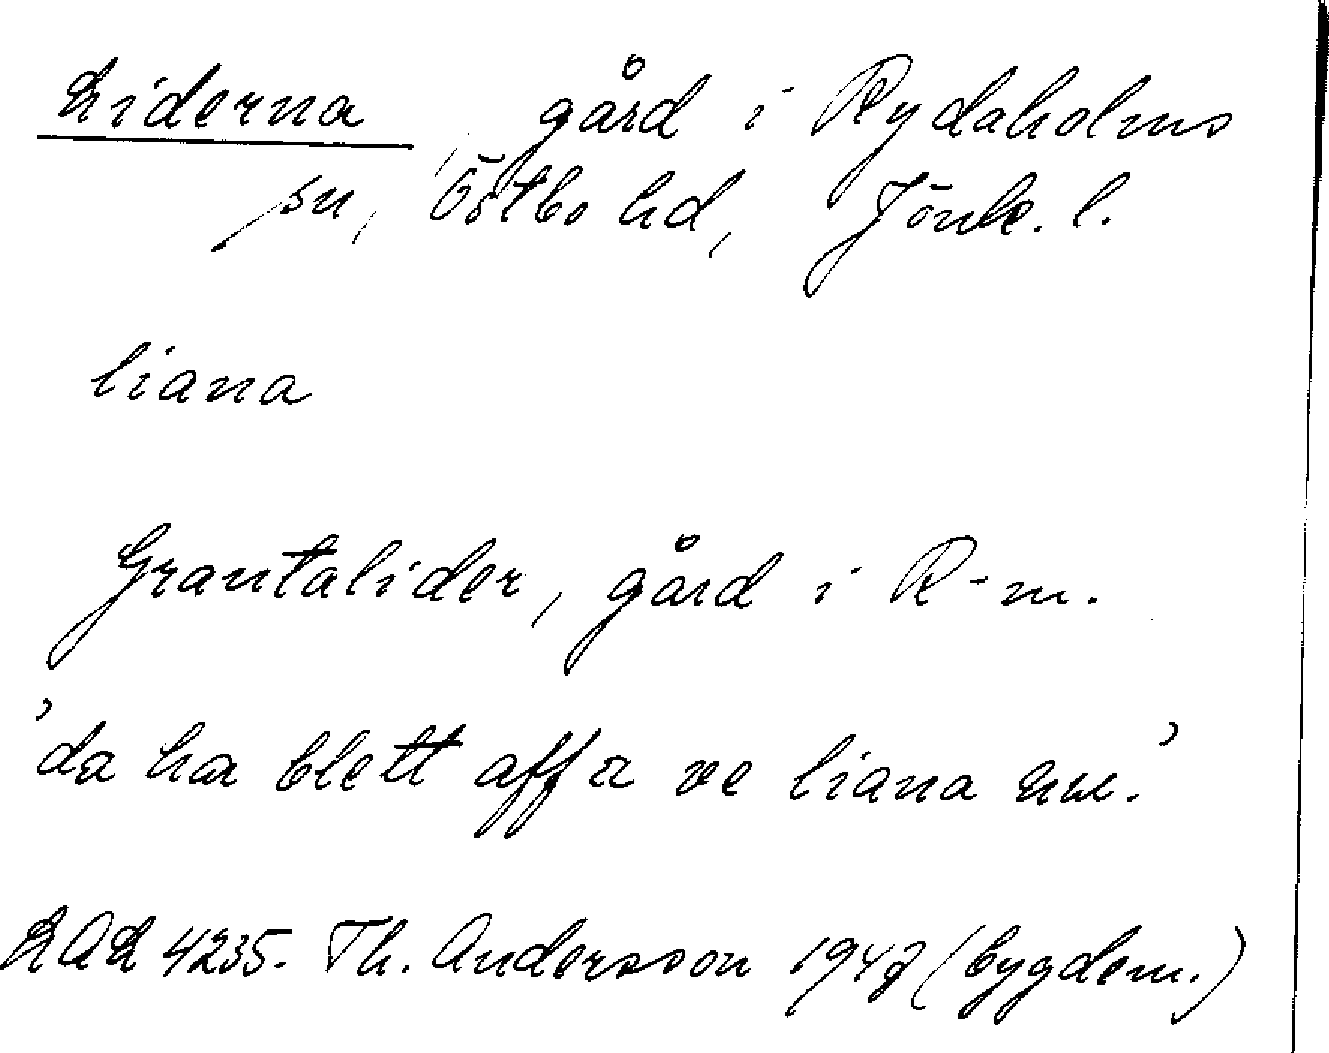 Liderna, gård i Rydaholms
sn, Östbo hd, Jönk. l.
liana
Grantalider, gård i R-m.
'da ha blett affär ve liana nu.'
LAL 4235. Th. Andersson 1947 (bygdem.)